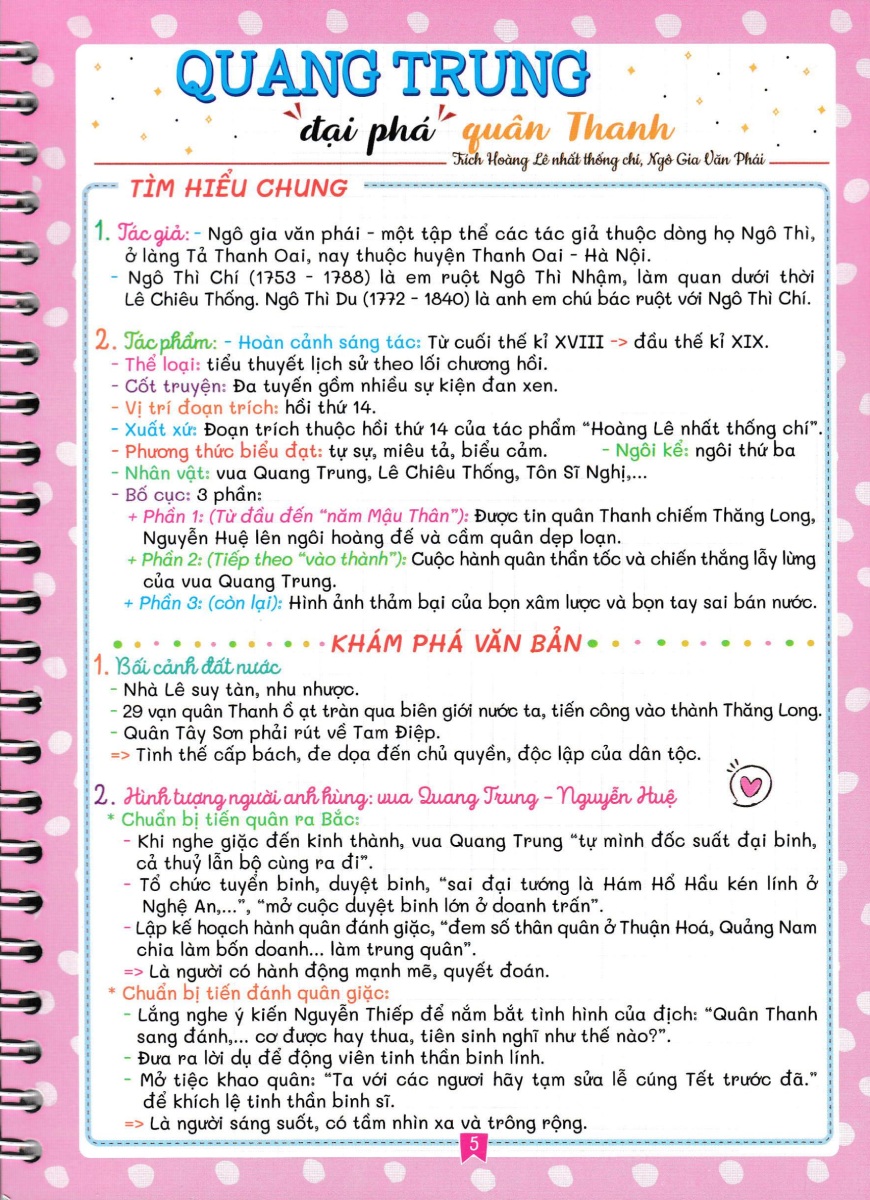 QUANG TRUNG
đại phá quân Thanh
Trích Hoàng Lê nhất thống chí, Ngô Gia Văn Phái
TÌM HIỂU CHUNG
1. Tác giả: - Ngô gia văn phái - một tập thể các tác giả thuộc dòng họ Ngô Thì,
ở làng Tả Thanh Oai, nay thuộc huyện Thanh Oai - Hà Nội.
- Ngô Thì Chí (1753 - 1788) là em ruột Ngô Thì Nhậm, làm quan dưới thời
Lê Chiêu Thống. Ngô Thì Du (1772 - 1840) là anh em chú bác ruột với Ngô Thì Chí.
2. Tác phẩm: - Hoàn cảnh sáng tác: Từ cuối thế kỉ XVIII -> đầu thế kỉ XIX.
- Thể loại: tiểu thuyết lịch sử theo lối chương hồi.
- Cốt truyện: Đa tuyến gồm nhiều sự kiện đan xen.
- Vị trí đoạn trích: hồi thứ 14.
- Xuất xứ: Đoạn trích thuộc hồi thứ 14 của tác phẩm “Hoàng Lê nhất thống chí”.
- Phương thức biểu đạt: tự sự, miêu tả, biểu cảm. - Ngôi kể: ngôi thứ ba
- Nhân vật: vua Quang Trung, Lê Chiêu Thống, Tôn Sĩ Nghị,...
- Bố cục: 3 phần:
+ Phần 1: (Từ đầu đến “năm Mậu Thân”): Được tin quân Thanh chiếm Thăng Long,
Nguyễn Huệ lên ngôi hoàng đế và cầm quân dẹp loạn.
+ Phần 2: (Tiếp theo “vào thành”): Cuộc hành quân thần tốc và chiến thắng lẫy lừng
của vua Quang Trung.
+ Phần 3: (còn lại): Hình ảnh thảm bại của bọn xâm lược và bọn tay sai bán nước.
KHÁM PHÁ VĂN BẢN
1. Bối cảnh đất nước
- Nhà Lê suy tàn, nhu nhược.
- 29 vạn quân Thanh ồ ạt tràn qua biên giới nước ta, tiến công vào thành Thăng Long.
- Quân Tây Sơn phải rút về Tam Điệp.
=> Tình thế cấp bách, đe dọa đến chủ quyền, độc lập của dân tộc.
2. Hình tượng người anh hùng: vua Quang Trung - Nguyễn Huệ
* Chuẩn bị tiến quân ra Bắc:
- Khi nghe giặc đến kinh thành, vua Quang Trung “tự mình đốc suất đại binh,
cả thuỷ lẫn bộ cùng ra đi”.
- Tổ chức tuyển binh, duyệt binh, “sai đại tướng là Hám Hổ Hầu kén lính ở
Nghệ An,...”, “mở cuộc duyệt binh lớn ở doanh trấn”.
- Lập kế hoạch hành quân đánh giặc, “đem số thân quân ở Thuận Hoá, Quảng Nam
chia làm bốn doanh... làm trung quân”.
=> Là người có hành động mạnh mẽ, quyết đoán.
* Chuẩn bị tiến đánh quân giặc:
- Lắng nghe ý kiến Nguyễn Thiếp để nắm bắt tình hình của địch: “Quân Thanh
sang đánh,... cơ được hay thua, tiên sinh nghĩ như thế nào?”.
- Đưa ra lời dụ để động viên tinh thần binh lính.
- Mở tiệc khao quân: “Ta với các ngươi hãy tạm sửa lễ cúng Tết trước đã.”
để khích lệ tinh thần binh sĩ.
=> Là người sáng suốt, có tầm nhìn xa và trông rộng.
5